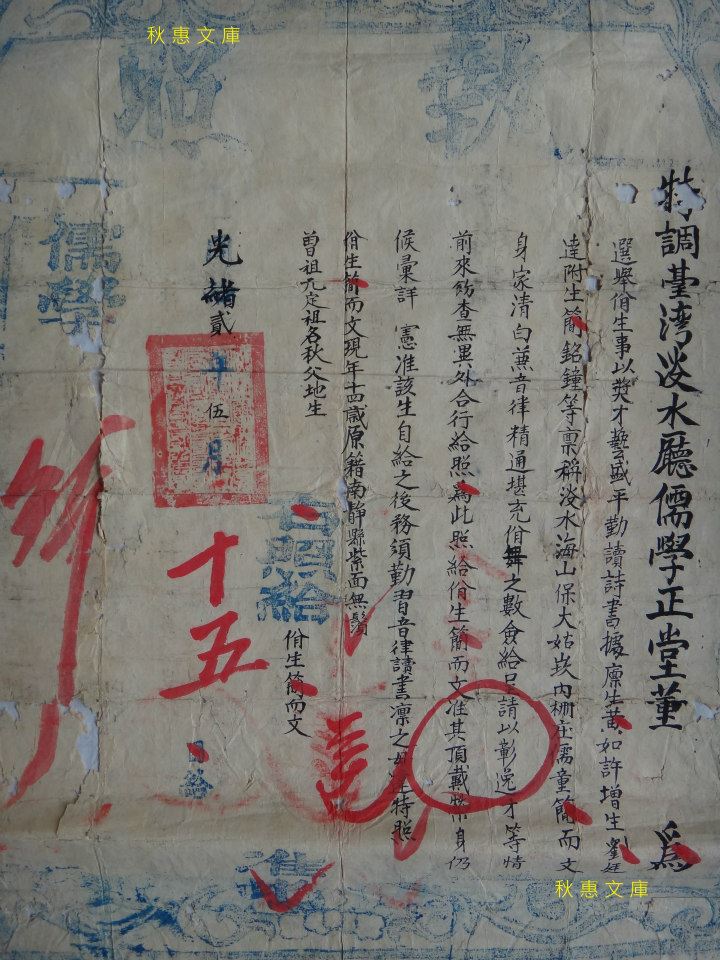 秋惠文庫
執照
特調臺湾淡水廳儒學正堂董 爲
選舉佾生事以奬才藝盛平勤讀詩書據廪生黄如許增生劉廷
達附生簡銘鐘等禀稱淡水海山保大姑崁内柵庄儒童簡而文
身家清白兼音律精通堪充佾舞之數僉給呈請以彰逸才等情
前來飭查無異外合行給照爲此照給佾生簡而文准其頂戴榮身仍
候彙詳 憲准該生自給之後務須勤習音律讀書凛之毋違特照
佾生簡而文現年十四歲原籍南靜縣紫面無鬚
曾祖九定祖名秋父地生
右照給 佾生簡而文 准
光緒貳十伍月 十五 日給
儒學
秋惠文庫